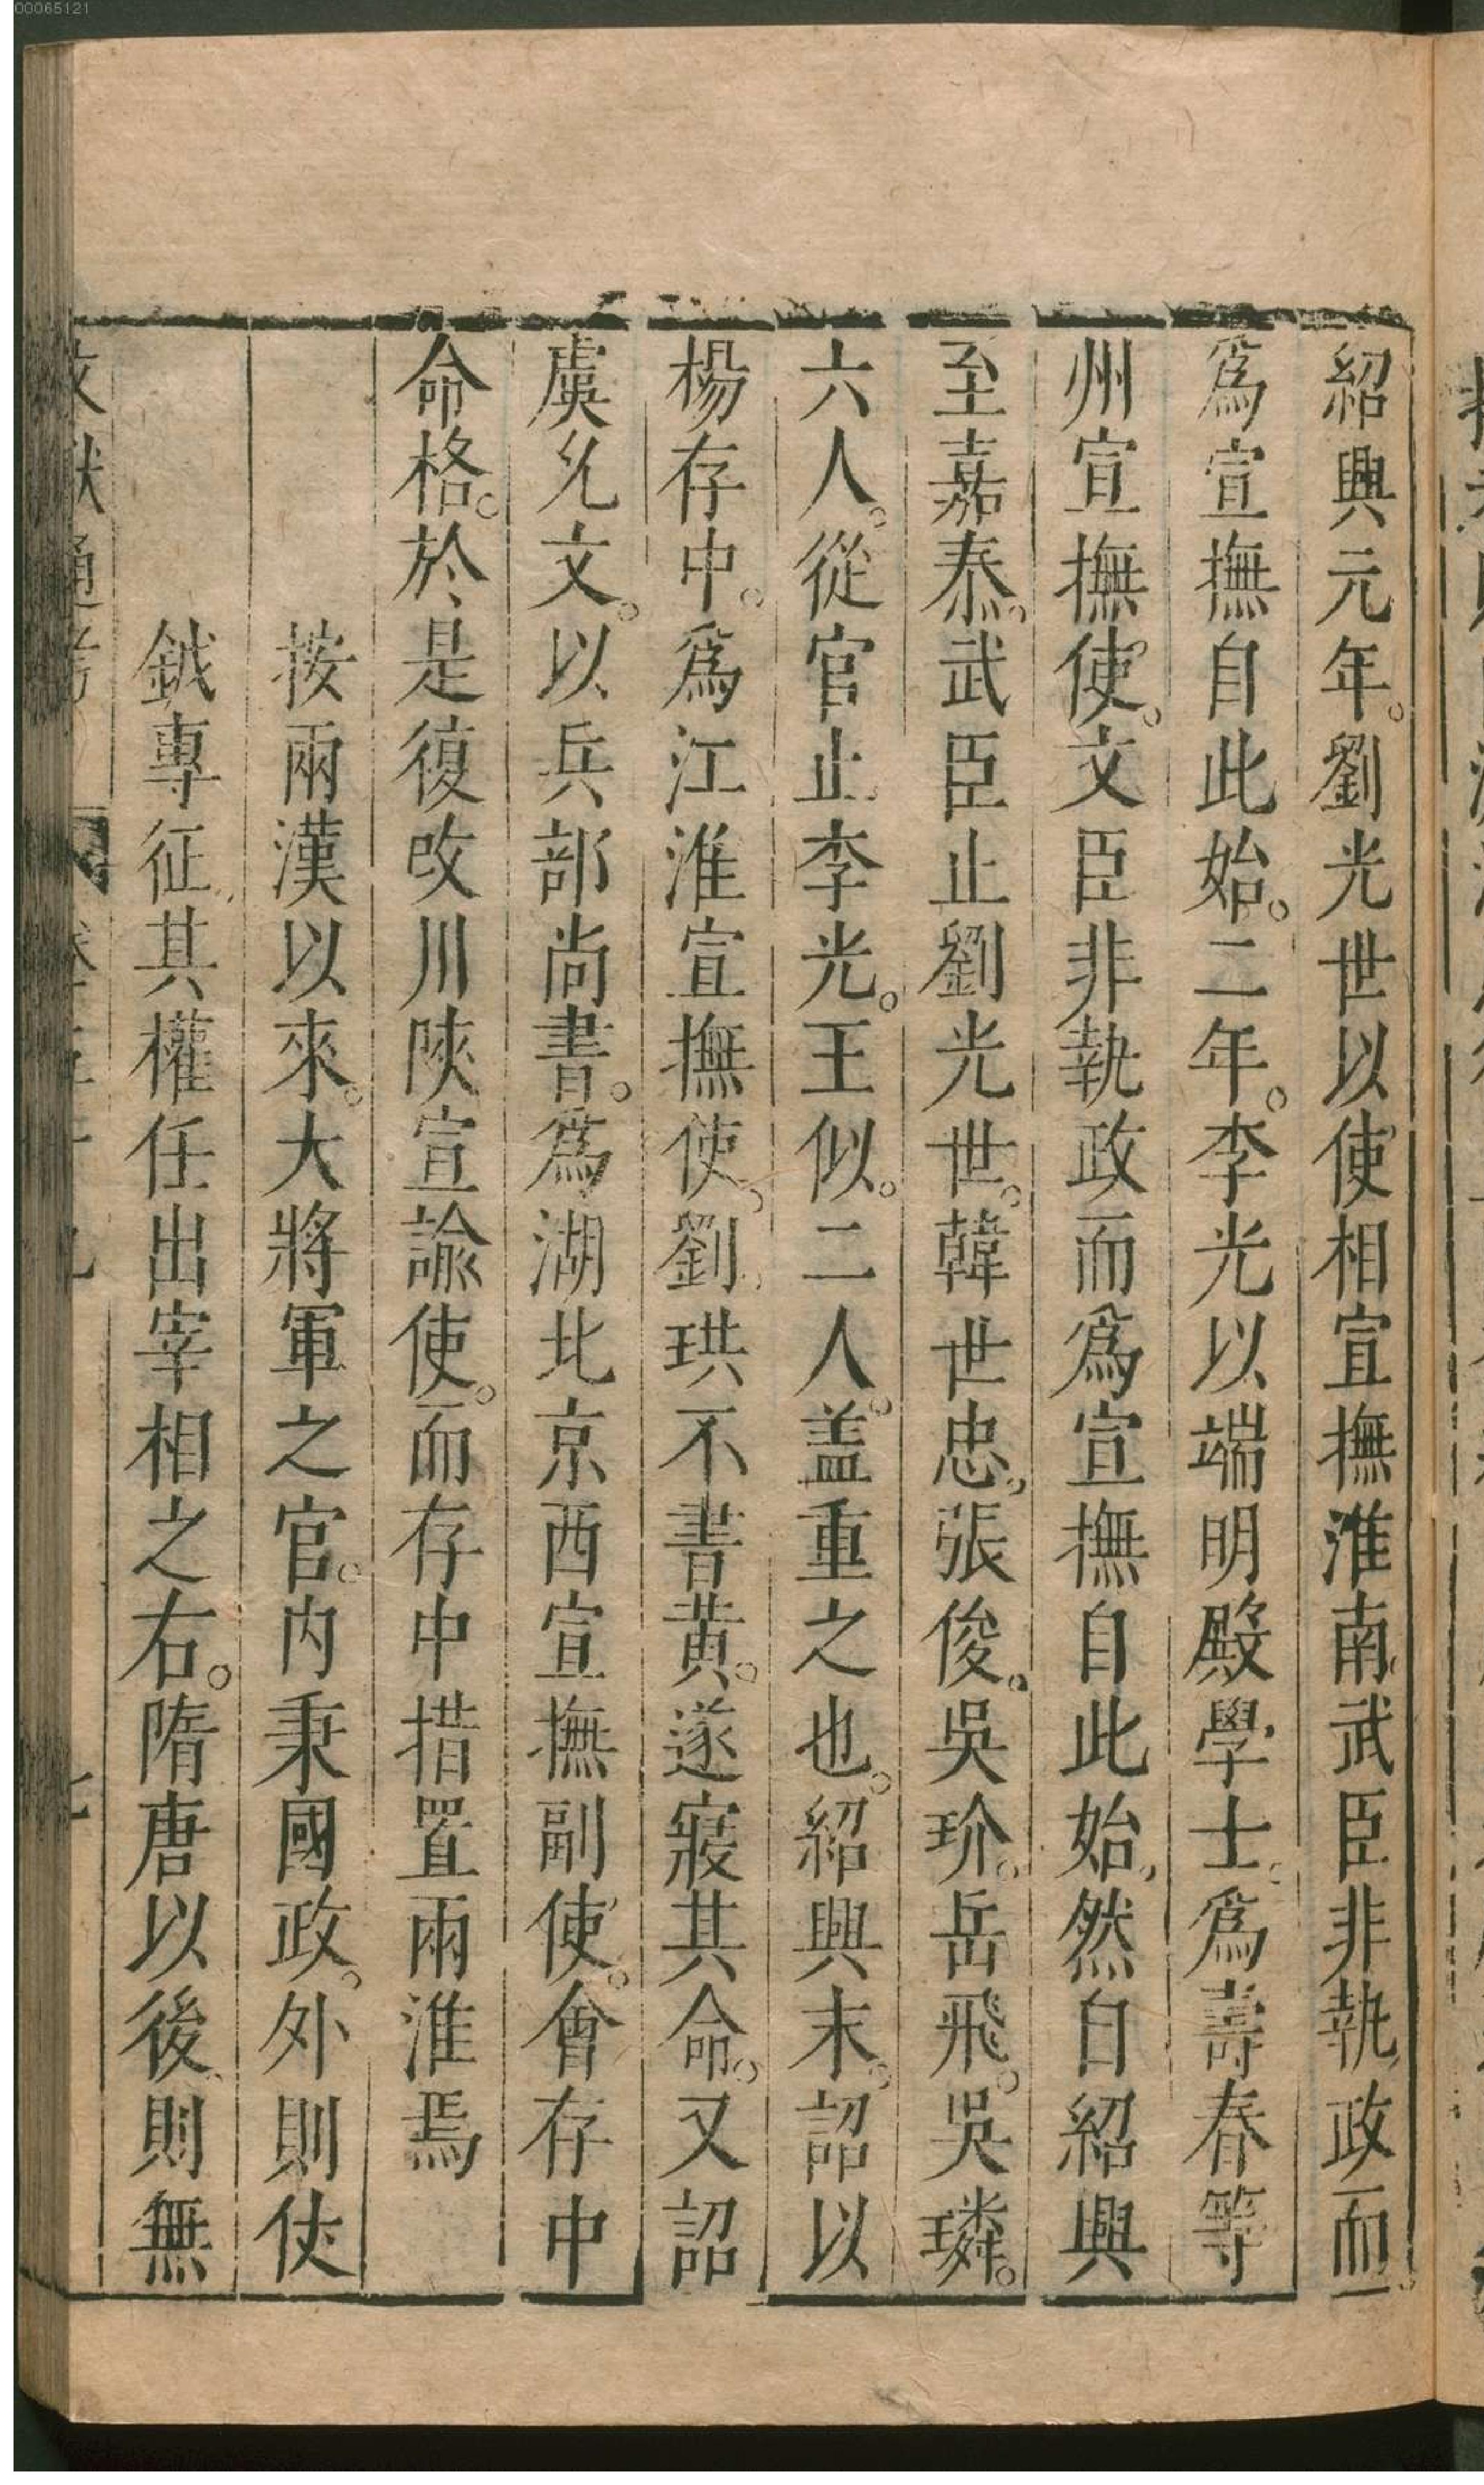 00065121
紹興元年。劉光世以使相宣撫淮南武臣非執政而
爲宣撫自此始。二年。李光以端明殿學士。爲壽春等
州宣撫使。文臣非執政而爲宣撫自此始。然自紹興
至嘉泰。武臣止劉光世。韓世忠。張俊。吳玠。岳飛。吳璘。
六人。從官止李光。王似。二人。盖重之也。紹興末。詔以
楊存中。爲江淮宣撫使。劉珙不書黄。遂寢其命。又詔
虞允文。以兵部尚書。爲湖北京西宣撫副使。會存中
命格。於是復改川陜宣諭使。而存中措置兩淮焉
按兩漢以來。大將軍之官。内秉國政。外則仗
鉞專征。其權任出宰相之右。隋唐以後。則無